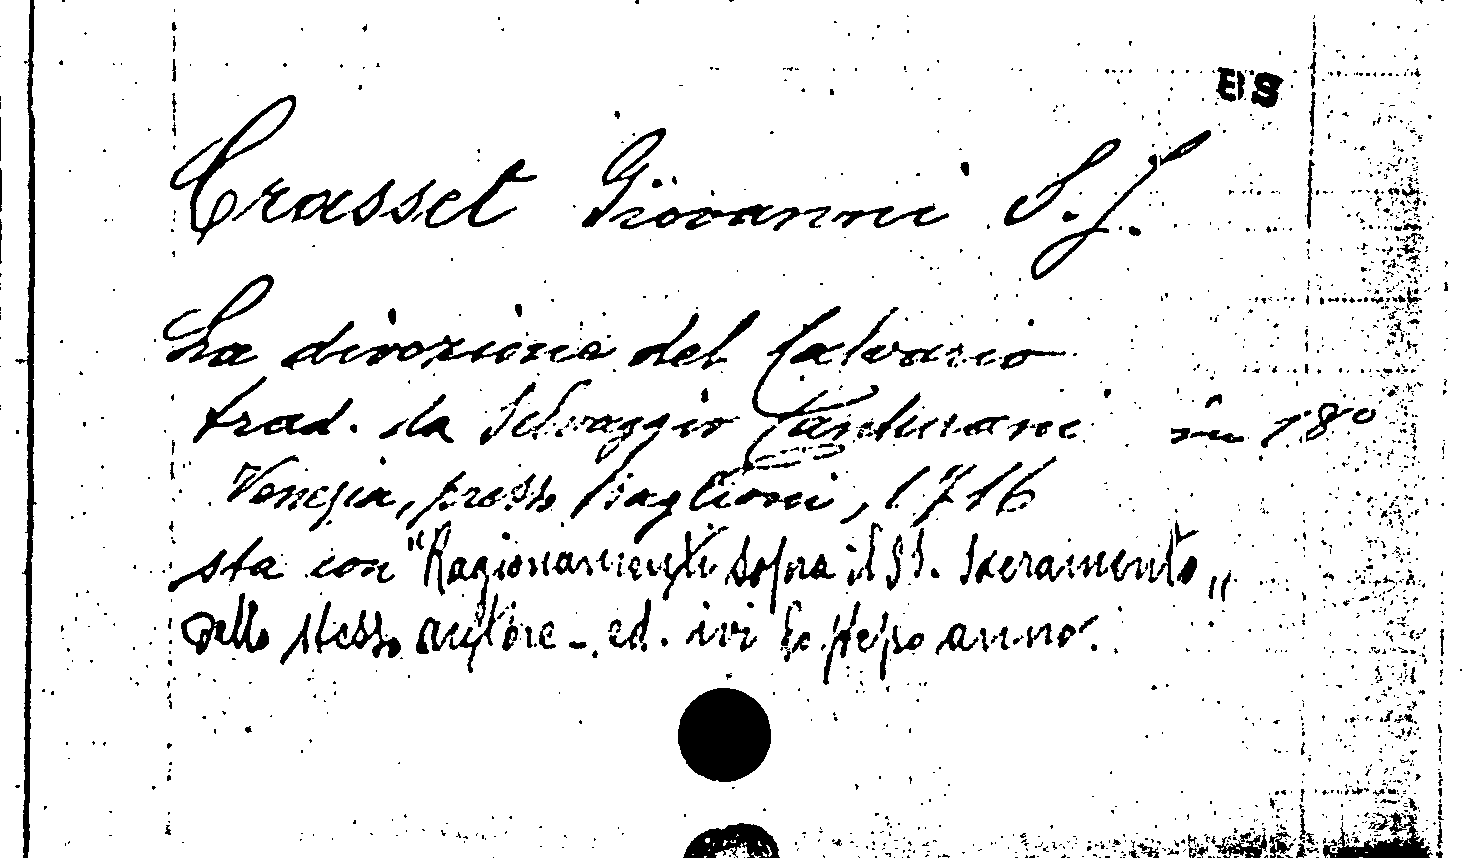 BS
Crasset Giovanni S.J.
La divozione del Calvario
trad. da Selvaggio Canturani in 18°
Venezia, presso Baglioni, 1716
sta con "Ragionamenti sopra il SS. Sacramento„
dello stesso autore - ed. ivi lo stesso anno.